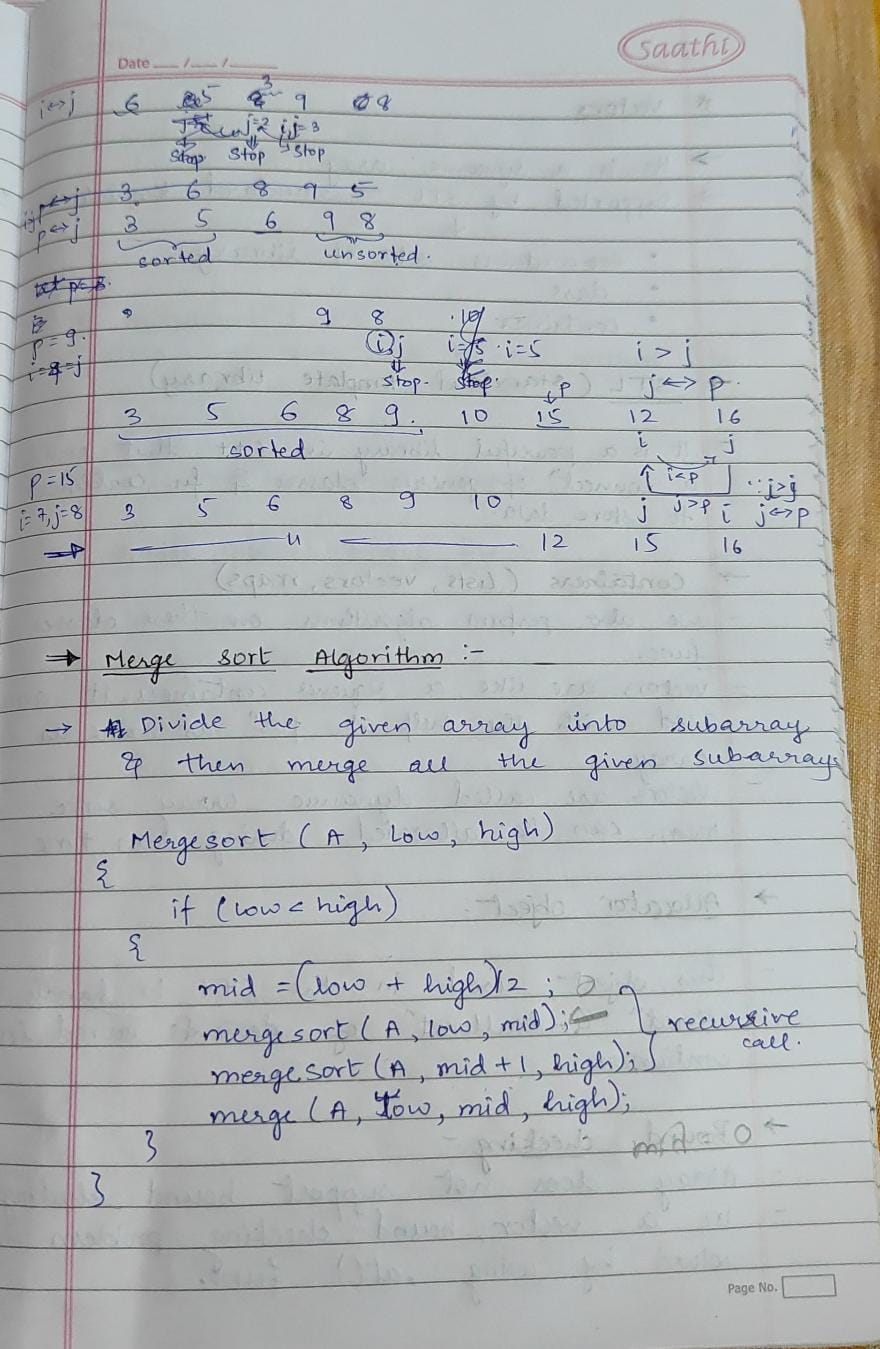 Saathi
Date ___/___/___
i↔j 6 5 3 9 8
j=2 i,j=3
Stop Stop Stop
p↔j 3 6 8 9 5
p↔j 3 5 6 9 8
sorted unsorted.
9 8 10
p=9. i j i=5 · i=5 i > j
i=4=j Stop. Stop. p j ↔ p.
3 5 6 8 9. 10 15 12 16
sorted i j
p=15 i<p ∵ i>j
i=7, j=8 3 5 6 8 9 10 j j>p i j↔p
⇒ ——— u ——— 12 15 16
⇒ Merge sort Algorithm :-
→ Divide the given array into subarray
& then merge all the given subarrays
Mergesort (A, low, high)
{
if (low < high)
{
mid = (low + high)/2 ;
mergesort (A, low, mid);
mergesort (A, mid+1, high); } recursive call.
merge (A, low, mid, high);
}
mid = 0
}
Page No.